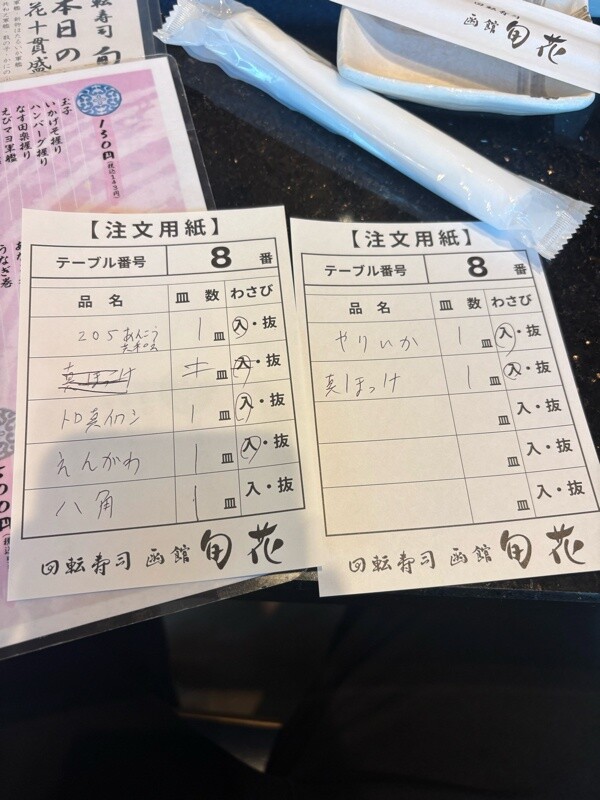 回転寿司 旬
本日の
花十貫盛
130円(税込143円)
玉子
いかげそ握り
ハンバーグ握り
なす田楽握り
えびマヨ軍艦
うなぎ巻
函館 旬花
【注文用紙】
テーブル番号 8 番
品 名 皿 数 わさび
205 あんこう共和え 1 皿 入・抜
真ほっけ 皿 入・抜
トロ真イワシ 1 皿 入・抜
えんがわ 1 皿 入・抜
八角 1 皿 入・抜
回転寿司 函館 旬花
【注文用紙】
テーブル番号 8 番
品 名 皿 数 わさび
やりいか 1 皿 入・抜
真ほっけ 1 皿 入・抜
皿 入・抜
皿 入・抜
皿 入・抜
回転寿司 函館 旬花